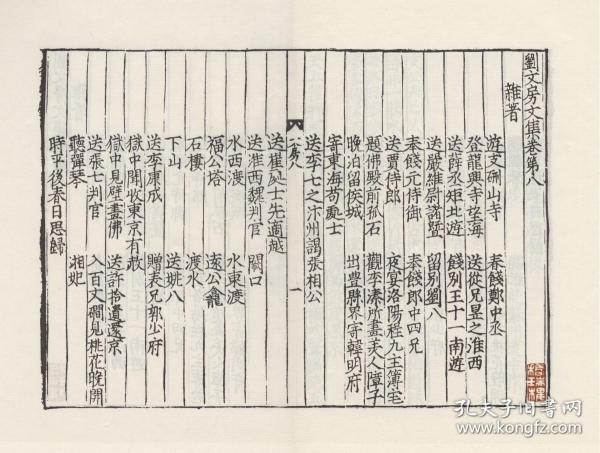 劉文房文集卷第八
雜著
遊支硎山寺 奉餞鄭中丞
登龍興寺望海 送從兄昱之淮西
送薛丞矩北遊 餞別王十一南遊
送嚴維尉諸暨 留別劉八
奉餞元侍御 奉餞郎中四兄
送賈侍郎 夜宴洛陽程九主簿宅
題佛殿前孤石 觀李湊所畫美人障子
晚泊留侯城 出豊縣界寄韓明府
寄東海苟處士
送李七之汴州謁張相公
文八
一
送崔處士先適越
送淮西魏判官 關口
水西渡 水東渡
福公塔 遠公龕
石樓 渡水
下山 送姚八
送李康成 贈表兄郭少府
獄中聞收東京有赦
獄中見壁畫佛 送許拾遺還京
送張七判官 入百丈澗見桃花晚開
聽彈琴 湘妃
時平後春日思歸
孔夫子旧书网
www.kongfz.com